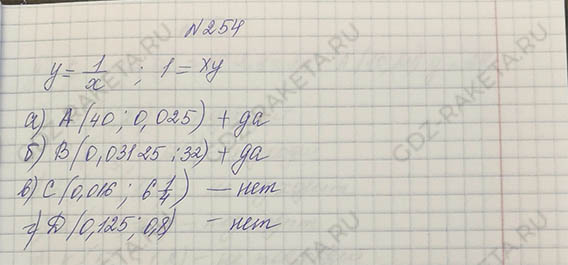 N254
y = 1/x ; 1 = xy
а) A (40 ; 0,025) + да
б) B (0,03125 ; 32) + да
в) C (0,016 ; 6 1/4) — нет
г) Д (0,125 ; 0,8) — нет
GDZ-RAKETA.RU
GDZ-RAKETA.RU